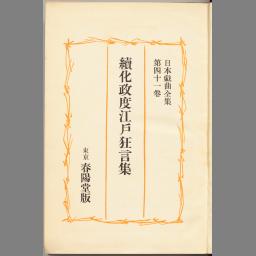 日本戯曲全集
第四十一巻
續化政度江戸狂言集
東京 春陽堂版